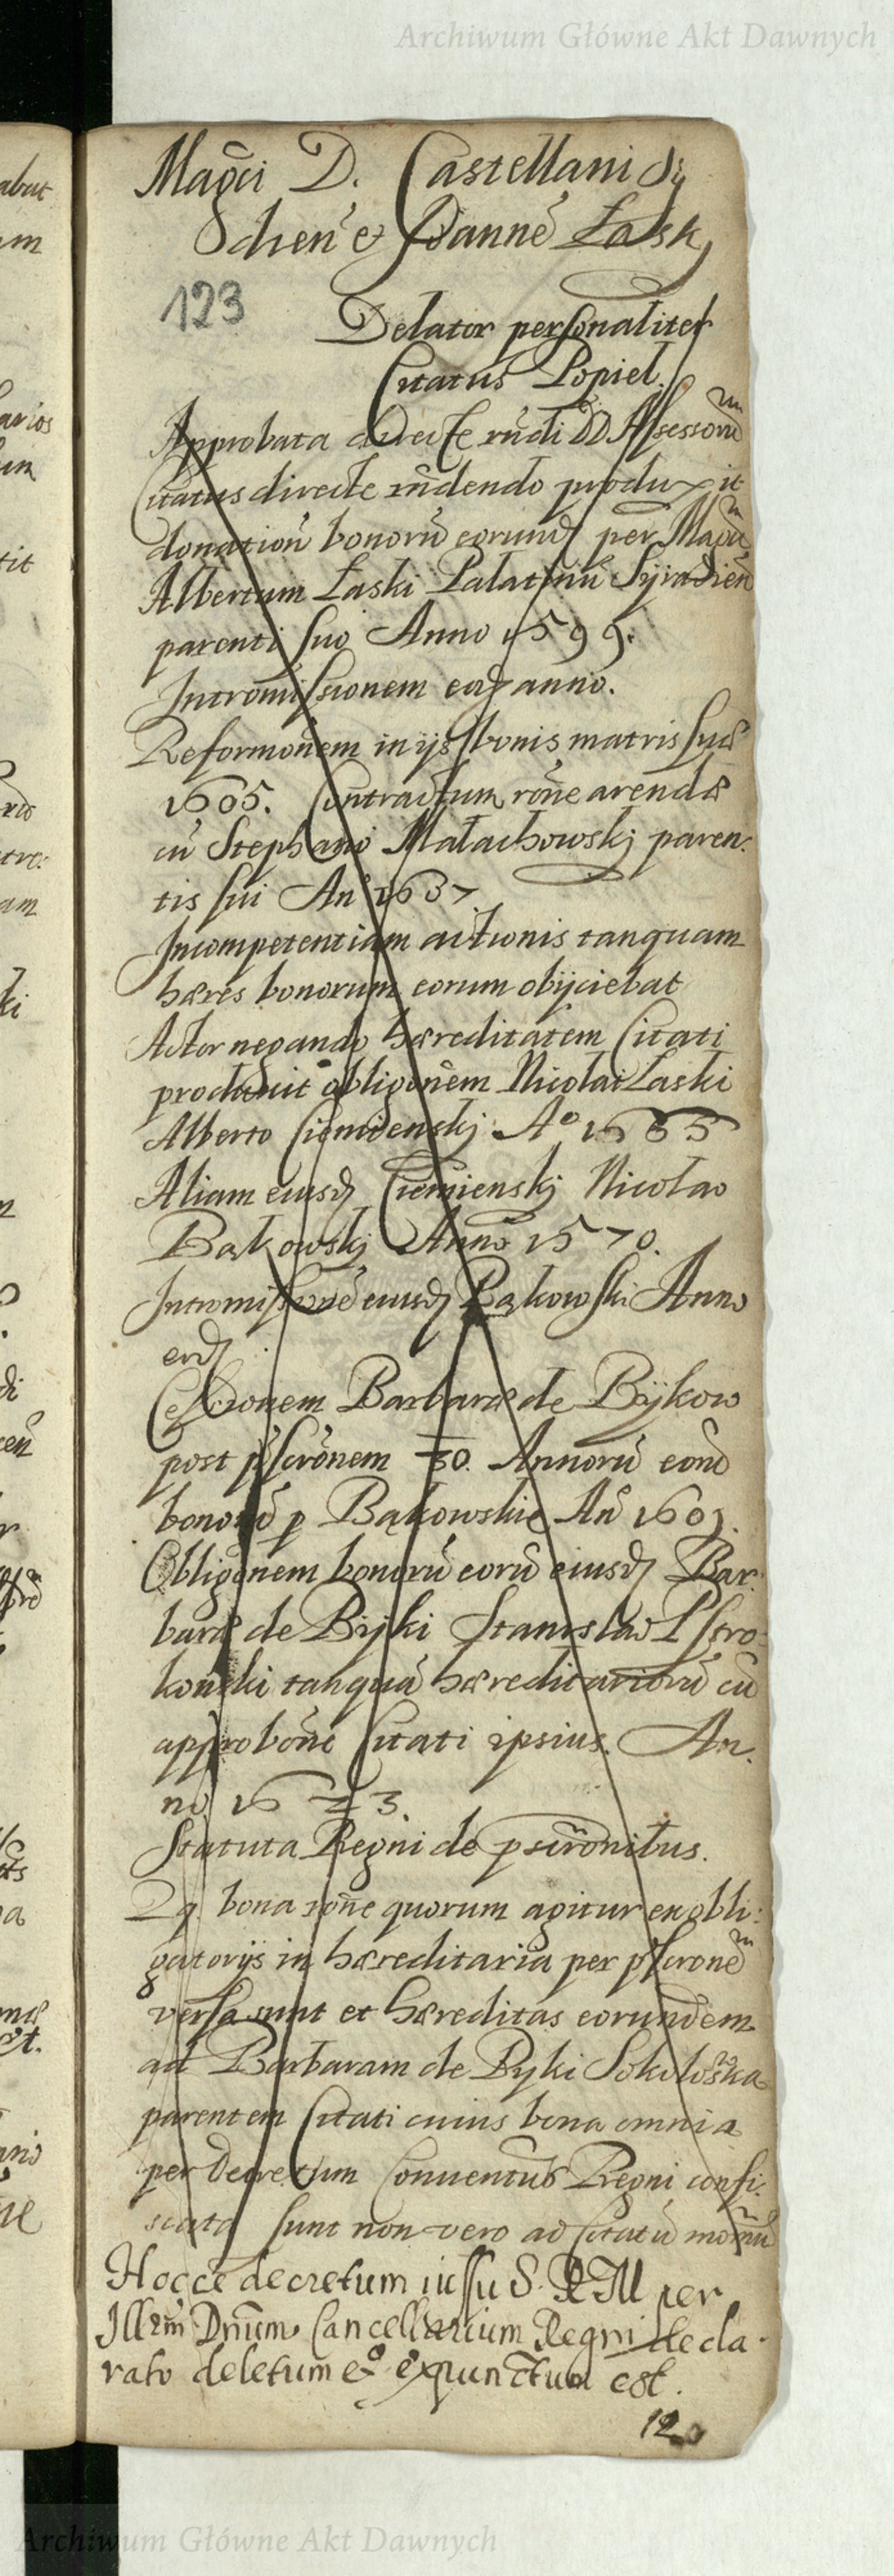 Archiwum Główne Akt Dawnych
Magci D. Castellani
Ochen̄ et Joanne Łask
123
Delator personaliter
Citatus Popiel.
Approbata directe rñdi DD Assessorū
Citatus directe rñdendo produxit
donationē bonorū eorund per Magcū
Albertum Łaski Palatinū Syradien̄
parenti suo Anno 1599.
Intromissionem eod anno.
Reformōnem in ijs bonis matris suæ
1605. Contractum rōne arendæ
cū Stephano Małachowskj paren:
tis sui An̄ 1637
Incompetentiam actionis tanquam
hæres bonorum eorum obijciebat
Actor negando hæreditatem Citati
produxit obligōnem Nicolai Łaski
Alberto Ciemienskj A° 1565
Aliam eiusd Ciemienskj Nicolao
Bąkowskj Anno 1570.
Intromissionē eiusd Bąkowski Anno
eod
Cessionem Barbaræ de Bÿkow
post pscrōnem 30. Annorū eorū
bonorū p Bąkowskie An̄ 1603.
Obligōnem bonorū eorū eiusd Bar:
baræ de Bijki Stanislao Pstro
koński tanquā hæreditariorū cū
approbōne Citati ipsius. An.
no 1623.
Statuta Regni de pscrōnibus.
Qq bona rōne quorum agitur ex obli:
gatorijs in hæreditaria per pscronē
versa sunt et hæreditas eorundem
ad Barbaram de Byki Sokolowska
parentem Citati cuius bona omnia
per Decretum Conuentus Regni confi:
scata sunt non vero ad Citatū
Hocce decretum iussu S. R M per
Illrm̄ Dnūm Cancellarium Regni decla-
rato deletum et expunctum est.
12
Archiwum Główne Akt Dawnych